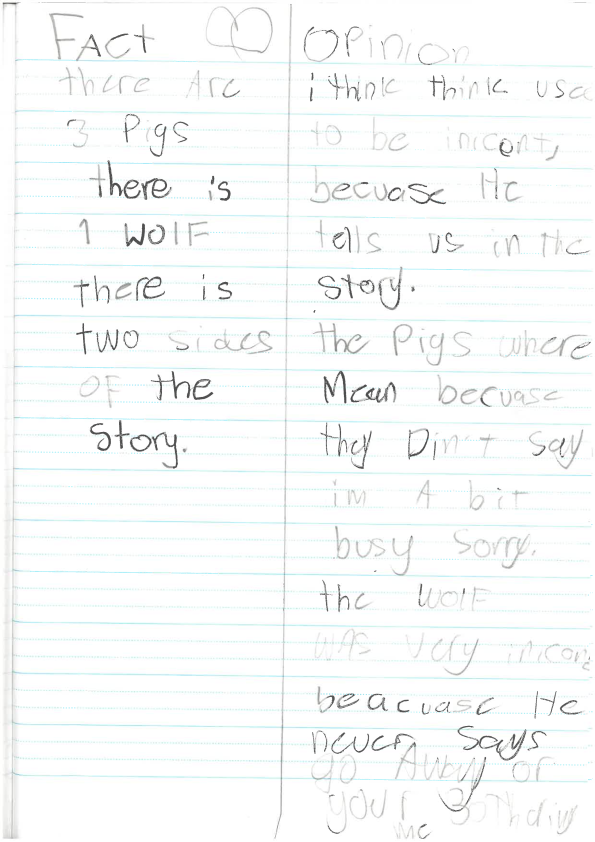 FAct
there Are
3 Pigs
there is
1 WolF
there is
two sides
OF the
Story.
Opinion
i think think usa
to be inicent,
becuase He
tells us in the
story.
the Pigs where
Mean becuase
they Din't say
im A bit
busy Sorry.
the WolF
wAs very inicent
beacuase He
never says
go Away or
your Bothering
me